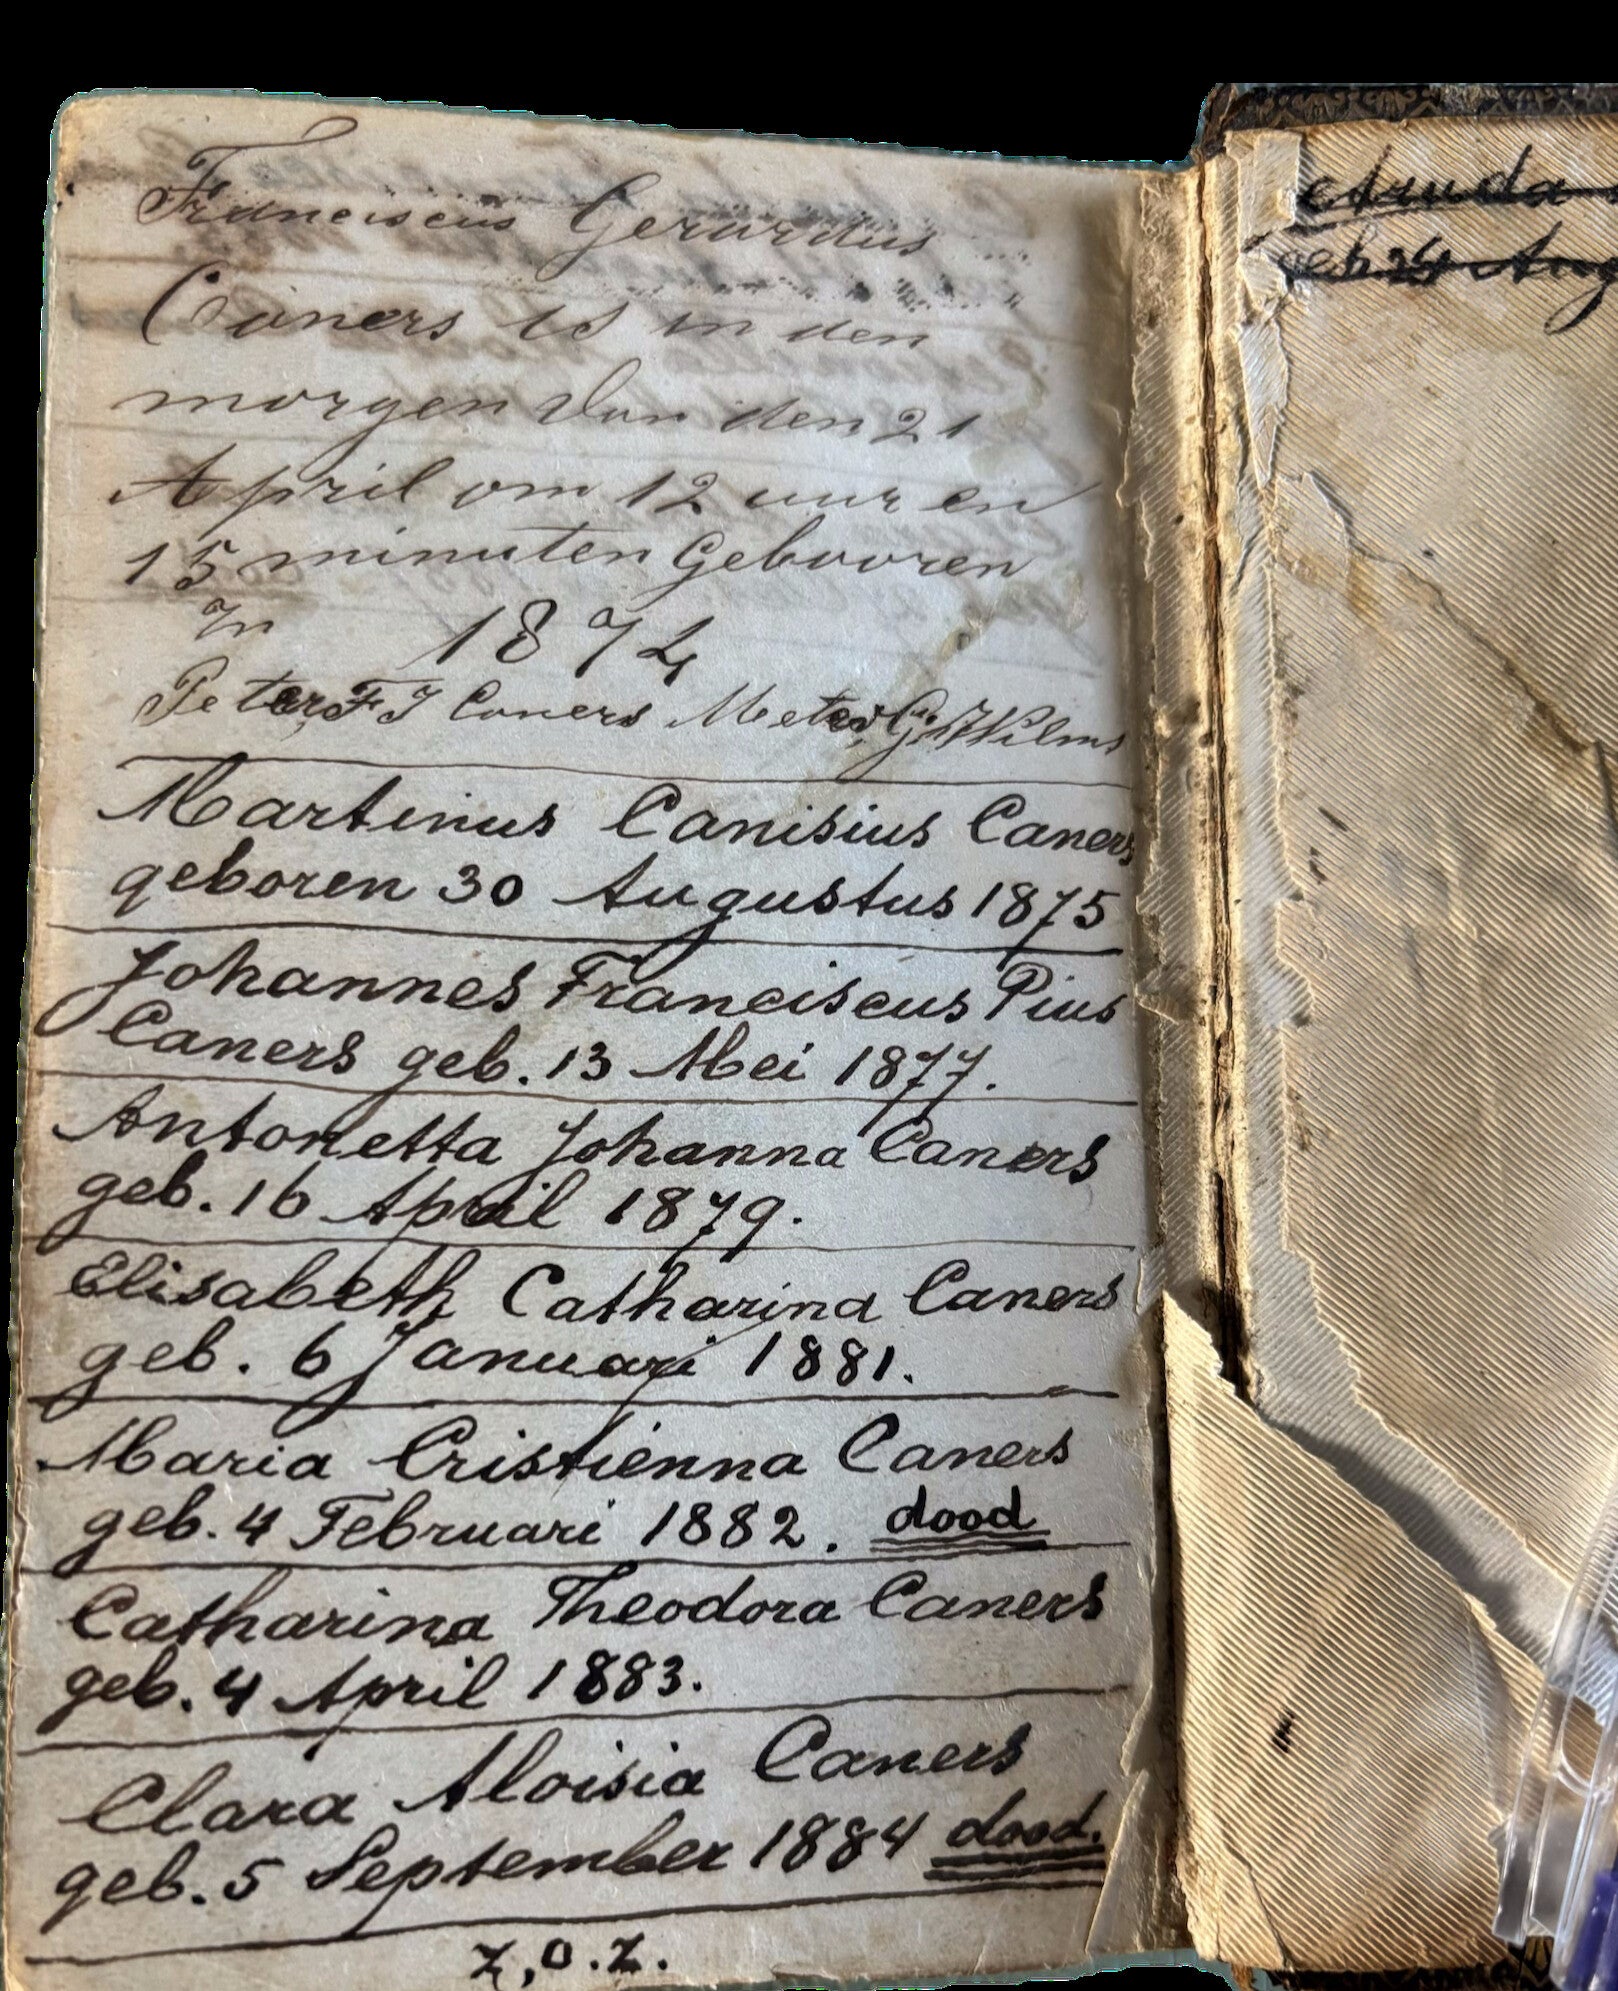 Franciscus Gerardus
Caners is in den
morgen van den 21
April om 12 uur en
15 minuten Gebooren
In 1874
Peter F J Caners Meter G. Wilms
Martinus Canisius Caners
geboren 30 Augustus 1875
Johannes Franciscus Pius
Caners geb. 13 Mei 1877.
Antonetta Johanna Caners
geb. 16 April 1879.
Elisabeth Catharina Caners
geb. 6 Januari 1881.
Maria Cristienna Caners
geb. 4 Februari 1882. dood
Catharina Theodora Caners
geb. 4 April 1883.
Clara Aloisia Caners
geb. 5 September 1884 dood.
z.o.z.
geb 24 Aug